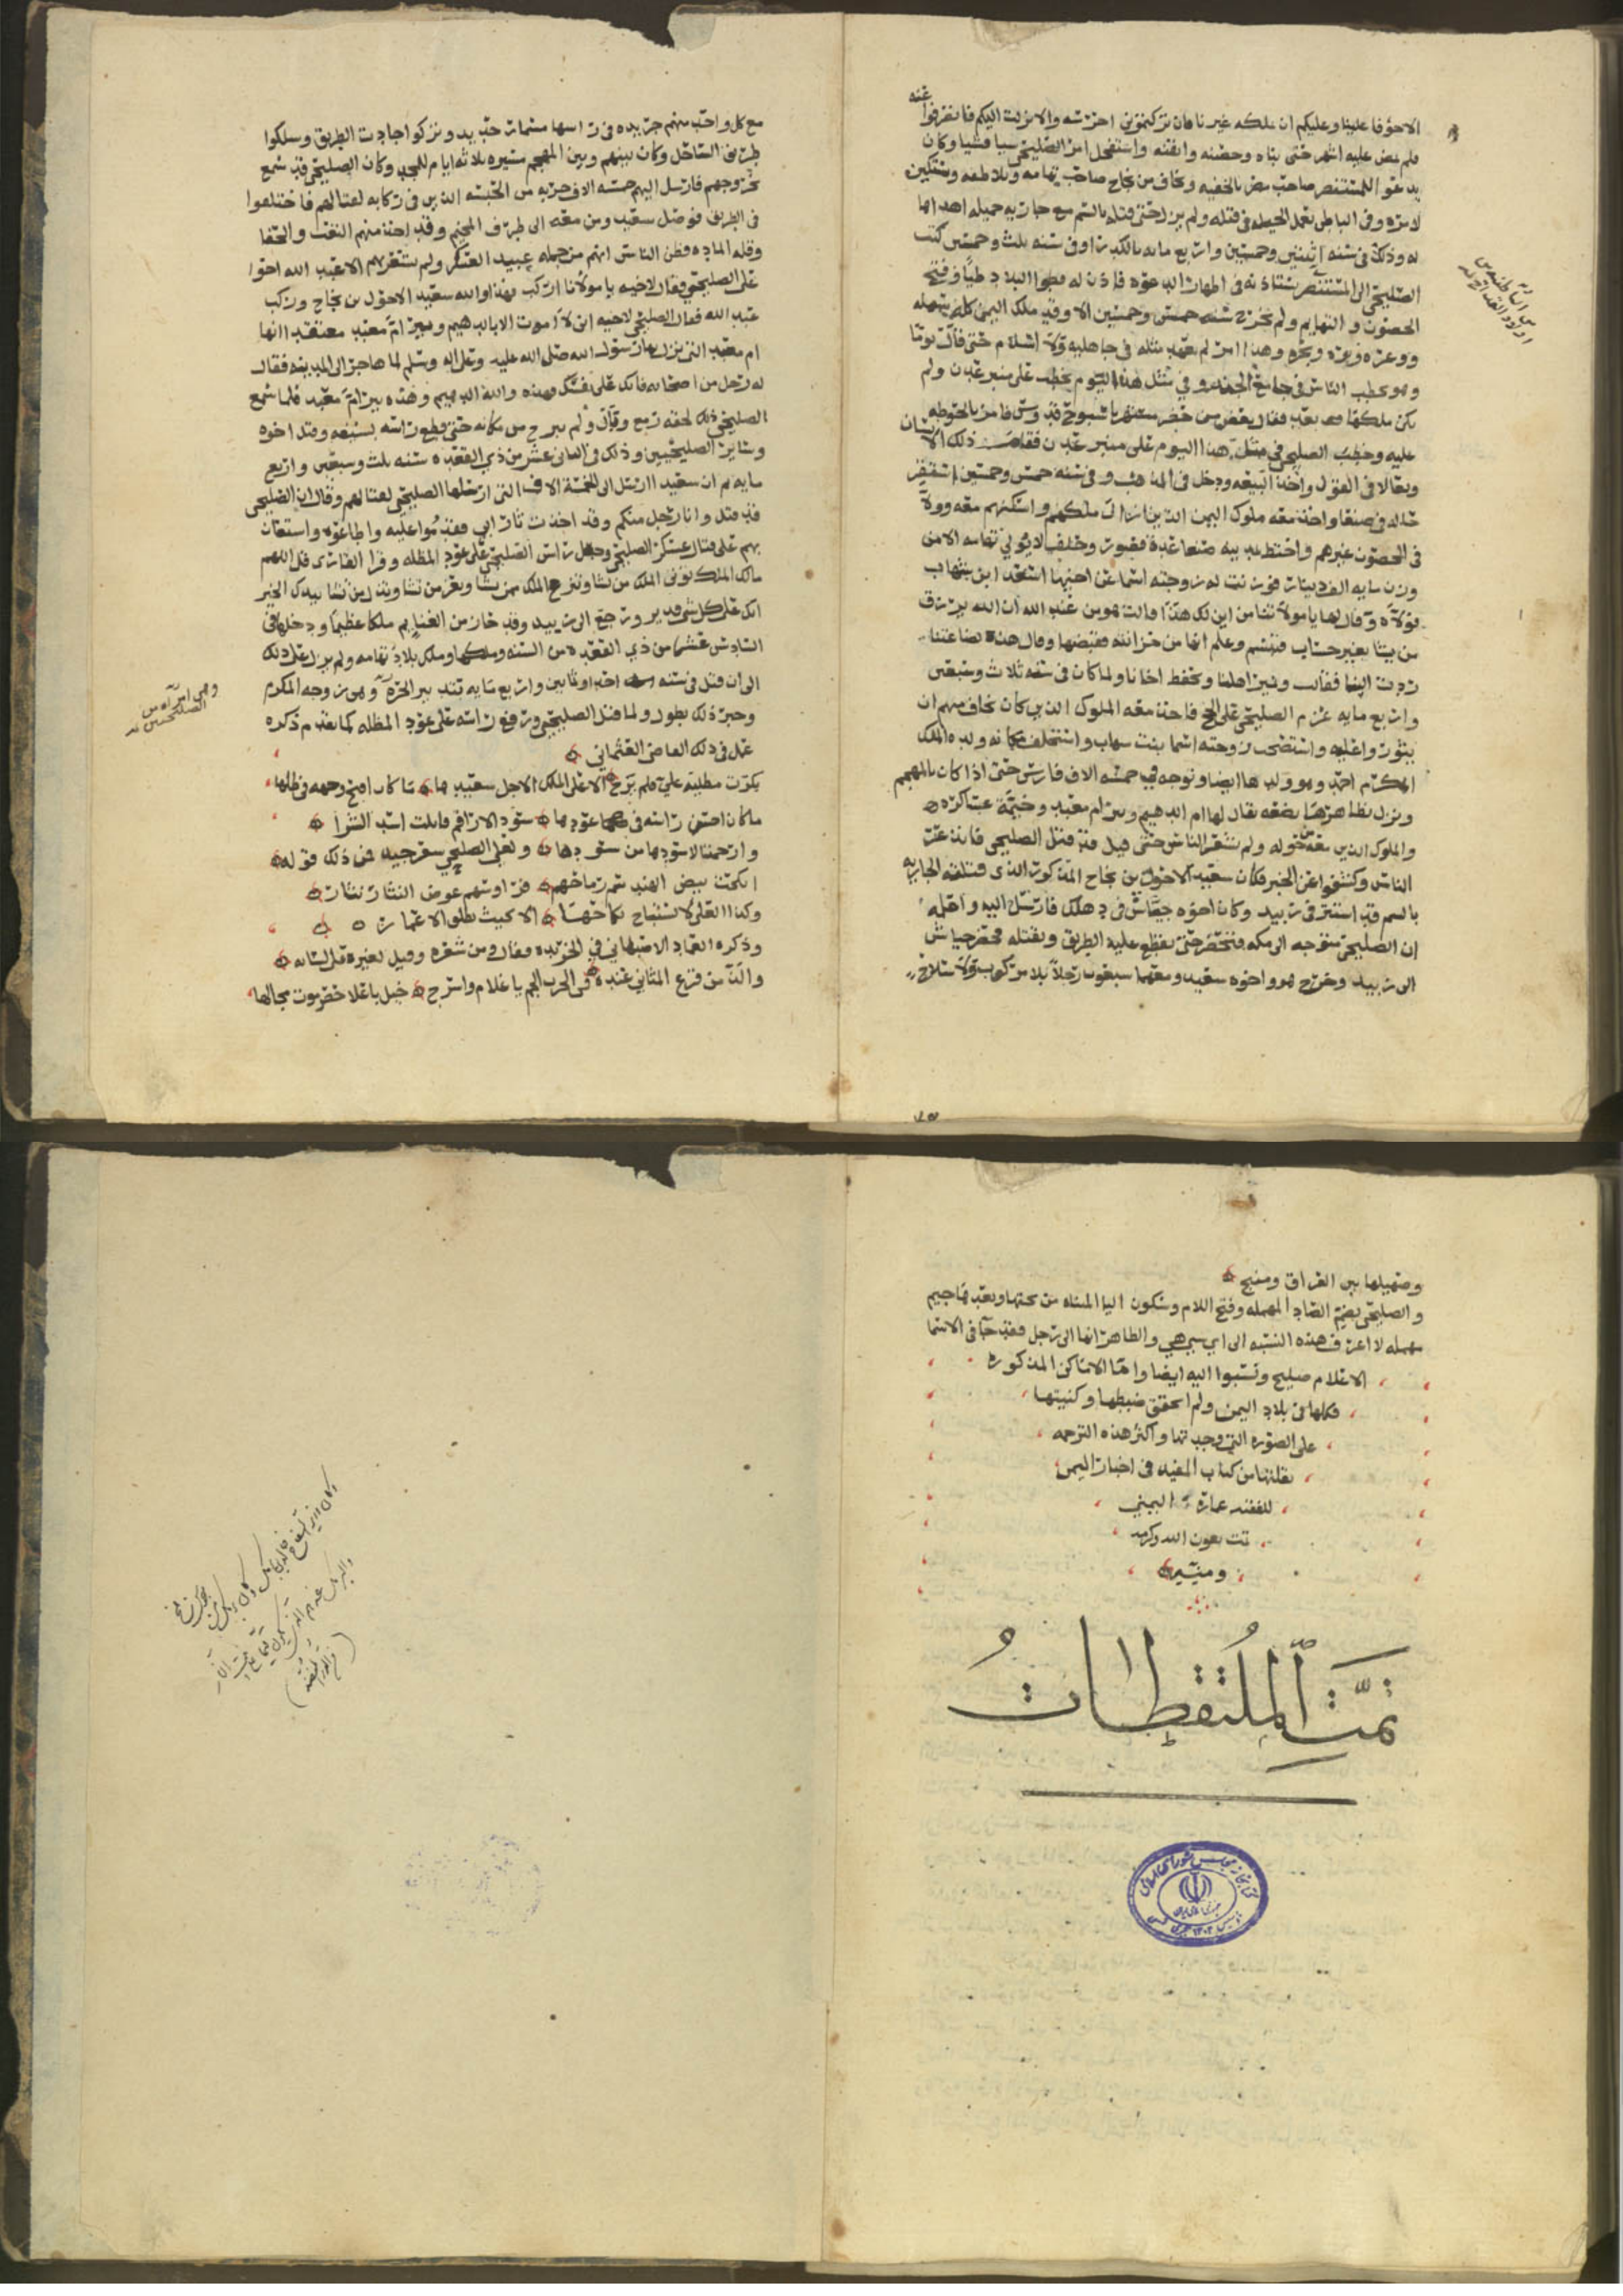 الا خوفا علينا وعليكم ان ملكه غيرنا فان تركتموني احرسه والا نزلت اليكم فانصرفوا عنه
فلم يمض عليه اشهر حتى بناه وحصنه واتقنه واستفحل امر الصليحي شيا فشيا وكان
يدعو اللمستنصر صاحب مصر بالخفيه ويخاف من نجاح صاحب تهامه ويلاطفه ويستكين
لامره وفى الباطن يعمل الحيله فى قتله ولم يزل حتى قتله بالسم مع جاريه جميله اهداها
له وذلك فى سنه اثنتين وخمسين واربع مايه بالكدرا وفى سنه ثلث وخمسين كتب
الصليحي الى المستنصر يستاذنه فى اظهار الدعوه فاذن له فطوا البلاد طيا وفتح
الحصون والتهايم ولم تخرج سنه خمس وخمسين الا وقد ملك اليمن كله سهله
ووعره وبره وبحره وهذا امر لم يعهد مثله في جاهليه ولا اسلام حتى قال يوما
وهو يخطب الناس فى جامع الجند وفي مثل هذا اليوم نخطب على منبر عدن ولم
يكن ملكها بعد فقال بعض من حضر مستهزيا سبوح قدوس فامر بالحوطه
عليه وخطب الصليحي فى مثل هذا اليوم على منبر عدن فقام ذلك الانسان
وتغالا فى القول واخذ البيعه ودخل فى المذهب وفى سنه خمس وخمسين استقر
حاله فى صنعا واخذ معه ملوك اليمن الذين ازال ملكهم واسكنهم معه وولا
فى الحصون غيرهم واختط بمدينه صنعا عدة قصور وحلف لا يولي تهامه الا من
وزن مايه الف دينار فوزنت له زوجته اسما عن اخيها اسعد ابن شهاب
فولاه وقال لها يا مولاتنا من اين لك هذا قالت هو من عند الله ان الله يرزق
من يشا بغير حساب فتبسم وعلم انها من خزانته فقبضها وقال هذه بضاعتنا
ردت الينا فقالت ونمير اهلنا ونحفظ اخانا ولما كان فى سنه ثلاث وسبعين
واربع مايه عزم الصليحي على الحج فاخذ معه الملوك الذين كان يخاف منهم ان
يثوروا عليه واستصحب زوجته اسما بنت شهاب واستخلف مكانه ولده الملك
المكرم احمد وهو ولدها ايضا وتوجه في خمسه الاف فارس حتى اذا كان بالمهجم
ونزل بظاهرها بضيعه يقال لها ام الدهيم وبير ام معبد وخيمة عساكره
والملوك الذين معه من حوله ولم يشعر الناس حتى قيل قد قتل الصليحي فانذعرت
الناس وكشفوا عن الخبر فكان سعيد الاحول بن نجاح المذكور الذى قتلته الجاريه
بالسم قد استتر فى زبيد وكان اخوه جياش فى دهلك فارسل اليه واعلمه
ان الصليحي متوجه الى مكه فتحضر حتى نقطع عليه الطريق ونقتله فحضر جياش
الى زبيد وخرج هو واخوه سعيد ومعهما سبعون رجلا بلا مركوب ولا سلاح
مع كل واحد منهم جريده فى راسها مسمار حديد وتركوا جادت الطريق وسلكوا
طريق الساحل وكان بينهم وبين المهجم مسيره ثلاثه ايام للمجد وكان الصليحي قد سمع
بخروجهم فارسل اليهم خمسه الاف حربه من الحبشه الذين فى ركابه لقتالهم فاختلفوا
فى الطريق فوصل سعيد ومن معه الى طرف المخيم وقد اخذ منهم التعب والحفا
وقله الماده فظن الناس انهم من جمله عبيد العسكر ولم يشعر بهم الا عبد الله اخو
على الصليحي فقال لاخيه يا مولانا اركب فهذا والله سعيد الاحول بن نجاح وركب
عبد الله فقال الصليحي لاخيه انى لا اموت الا بالدهيم وبير ام معبد معتقدا انها
ام معبد التى نزل بها رسول الله صلى الله عليه وعلى اله وسلم لما هاجر الى المدينه فقال
له رجل من اصحابه قاتل على نفسك فهذه والله الدهيم وهذه بير ام معبد فلما سمع
الصليحي ذلك لحقه زمع وبال ولم يبرح من مكانه حتى قطع راسه بسيفه وقتل اخوه
وساير الصليحيين وذلك فى الثانى عشر من ذي القعده سنه ثلث وسبعين واربع
مايه ثم ان سعيد ارسل الى الخمسة الاف التى ارسلها الصليحي لقتالهم وقال ان الصليحي
قد قتل وانا رجل منكم وقد اخذت ثار ابي فقدموا عليه واطاعوه واستعان
بهم على قتال عسكر الصليحي وجعل راس الصليحي على عود المظله وقرا القارى قل اللهم
مالك الملك توتى الملك من تشا وتنزع الملك ممن تشا وتعز من تشا وتذل من تشا بيدك الخير
انك على كل شى قدير ورجع الى زبيد وقد حاز من الغنايم ملكا عظيما ودخلها فى
السادس عشر من ذي القعده من السنه وملكها وملك بلاد تهامه ولم يزل على ذلك
الى ان قتل فى سنه احد وثمانين واربع مايه بتدبير الحرة وهى زوجه المكرم
وخبر ذلك يطول ولما قتل الصليحي ورفع راسه على عود المظله كما تقدم ذكره
عمل فى ذلك القاضى العثمانى
بكرت مظلته عليه فلم ترح الا على الملك الاجل سعيدها ما كان اقبح وجهه فى ظلها
ما كان احسن راسه فى عودها سود الاراقم قابلت اسد الشرا
وارحمتا لاسودها من سودها ولعلى الصليحي شعر جيد فمن ذلك قوله
انكحت بيض الهند سمر رماحهم فروسهم عوض النثار نثار
وكذا العلى لا يستباح نكاحها الا بحيث تطلق الاعمار
وذكره العماد الاصبهاني فى الخريده فقال ومن شعره وقيل لغيره قل لسانه
والذ من قرع المثانى عنده فى الحرب الجم يا غلام واسرج خيل باعلا حضرموت مجالها
وهى امراه من
الصليحيين
وصهيلها بين العراق ومنبج
والصليحى بضم الصاد المهمله وفتح اللام وسكون اليا المثناه من تحتها وبعدها جيم
مهمله لا اعرف هذه النسبه الى اي شي هي والظاهر انها الى رجل فقد جا فى الاسما
الاعلام صليح ونسبوا اليه ايضا واما الاماكن المذكوره
فكلها فى بلاد اليمن ولم اتحقق ضبطها وكتبتها
على الصوره التى وجدتها واكثر هذه الترجمه
نقلتها من كتاب المفيد فى اخبار اليمن
للفقيه عماره اليمني
تمت بعون الله وكرمه
ومنه
تمت الملتقطات
كتابخانه مجلس شورای اسلامی